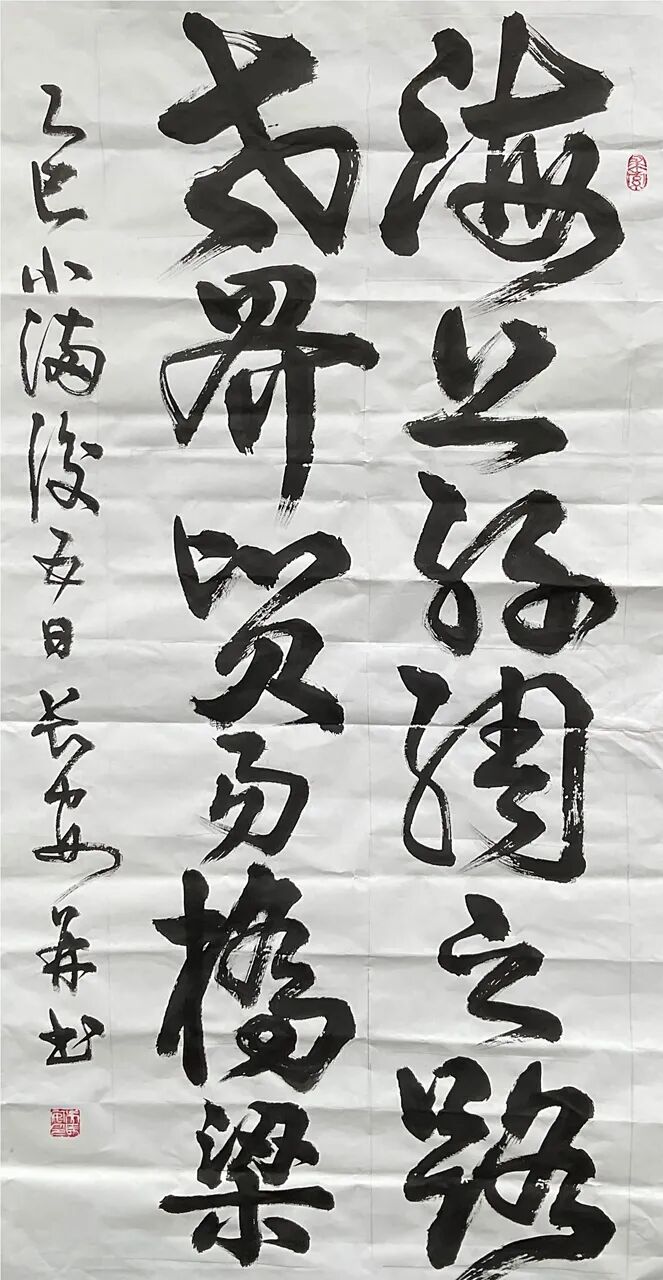 海上丝绸之路
世界贸易桥梁
乙巳小满后五日长安 书